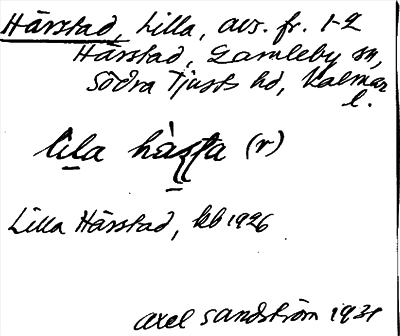 Hårstad, Lilla, avs. fr. 1-2
Hårstad, Gamleby sn,
Södra Tjusts hd, Kalmar
l.
lila (r)
Lilla Hårstad, kb 1926
Axel Sandström 1931